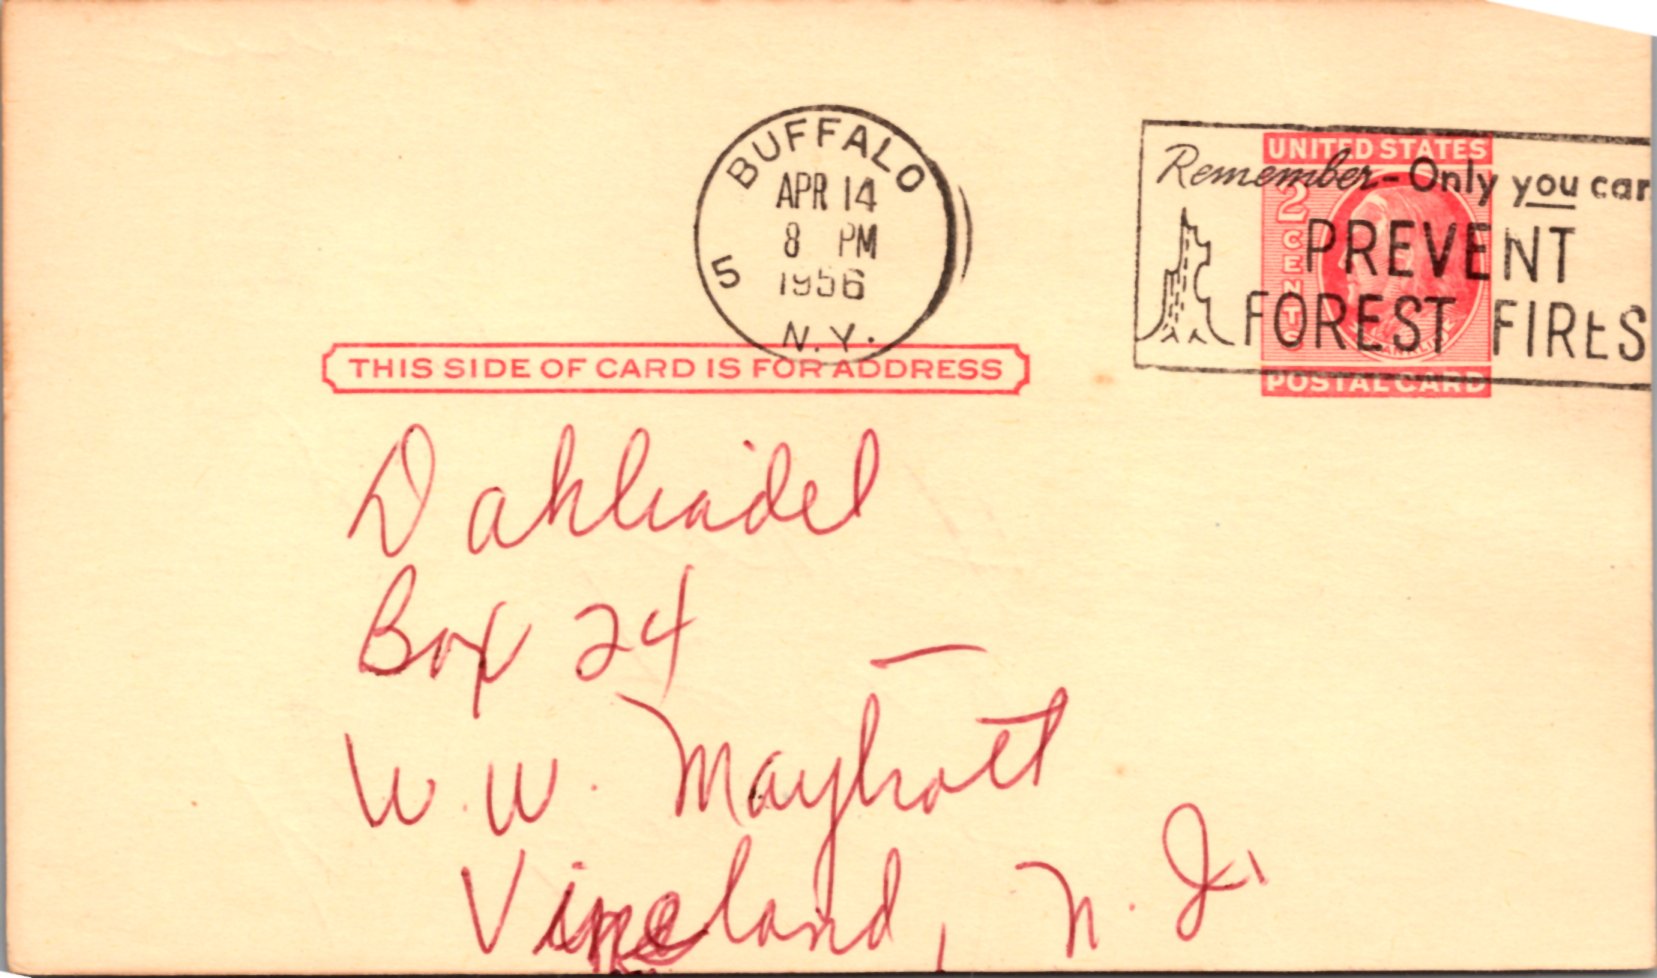 BUFFALO
APR 14
8 PM
1956
5
N.Y.
UNITED STATES
2 CENTS
Remember - Only you can
PREVENT
FOREST FIRES
POSTAL CARD
THIS SIDE OF CARD IS FOR ADDRESS
Dahliadel
Box 24
W. W. Maytrott
Vineland, N. J.